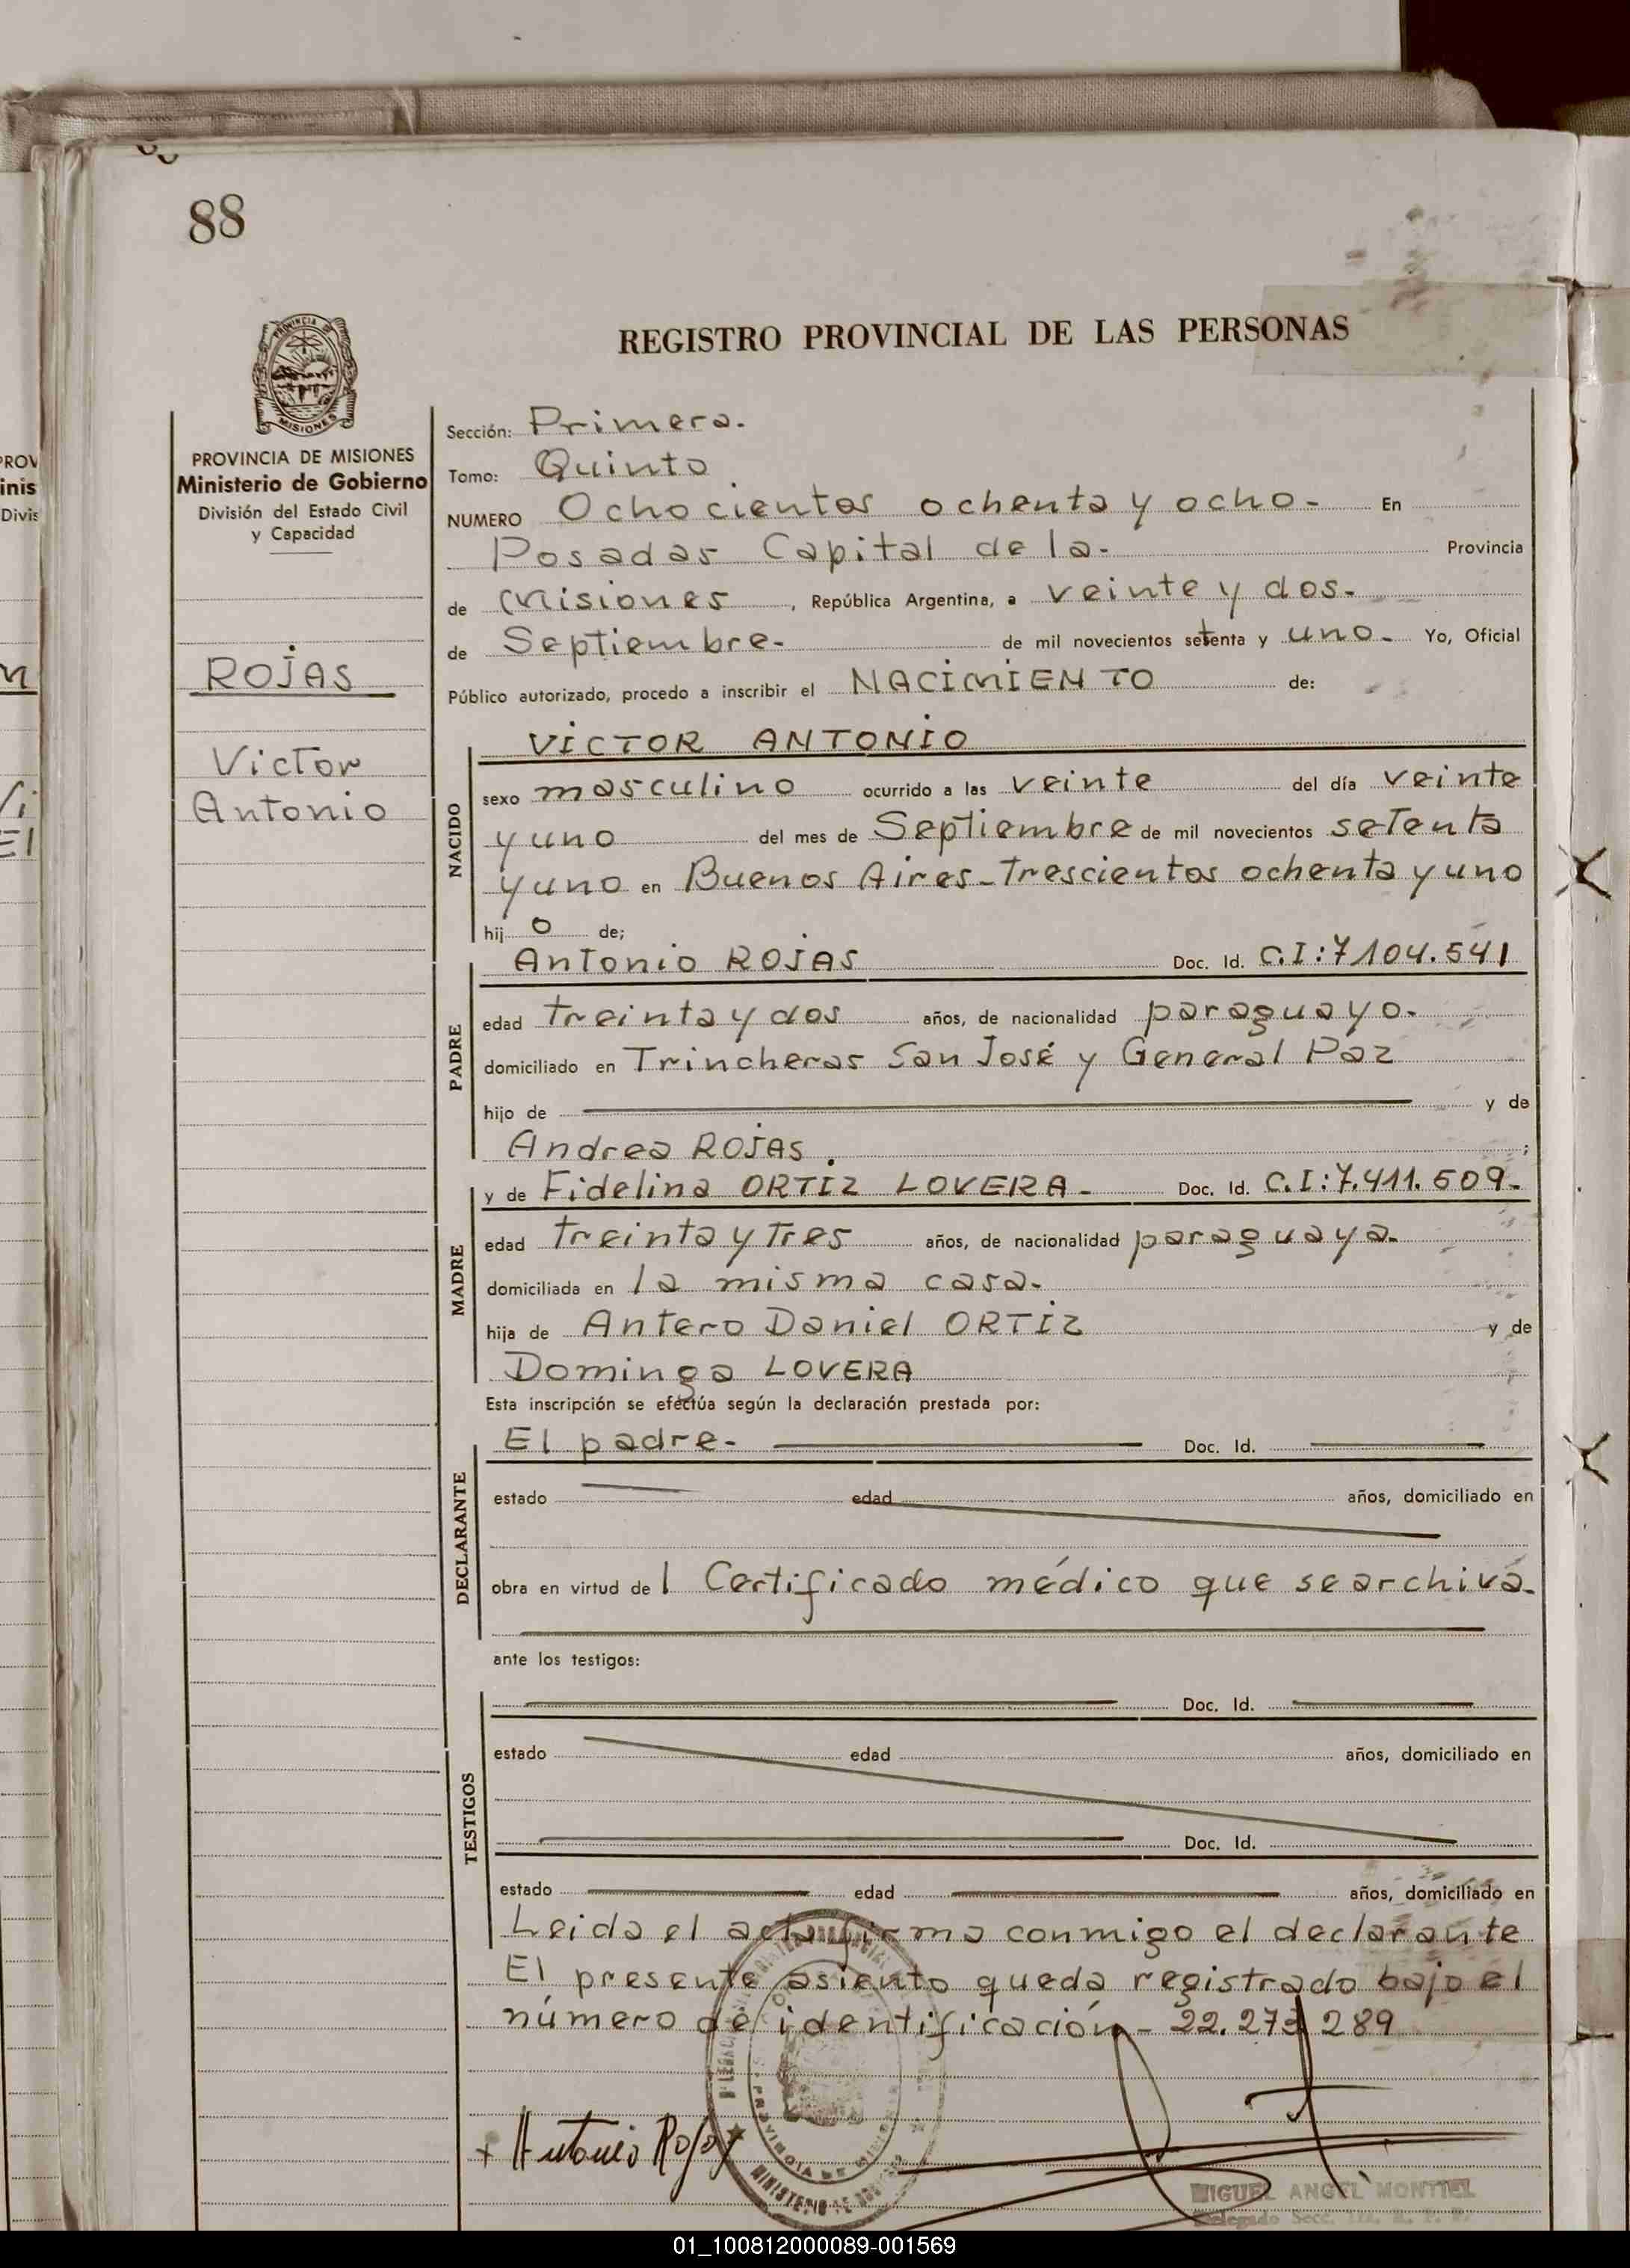 88
REGISTRO PROVINCIAL DE LAS PERSONAS
PROVINCIA DE MISIONES
Ministerio de Gobierno
División del Estado Civil
y Capacidad
ROJAS
Victor
Antonio
Sección: Primera.
Tomo: Quinto
NUMERO Ochocientos ochenta y ocho- En
Posadas Capital de la- Provincia
de Misiones, República Argentina, a veinte y dos-
de Septiembre- de mil novecientos setenta y uno- Yo, Oficial
Público autorizado, procedo a inscribir el NACIMIENTO de:
NACIDO
VICTOR ANTONIO
sexo masculino ocurrido a las veinte del día veinte
y uno del mes de Septiembre de mil novecientos setenta
y uno en Buenos Aires-Trescientos ochenta y uno
hij o de;
PADRE
Antonio ROJAS Doc. Id. C.I:7104.541
edad treinta y dos años, de nacionalidad paraguayo.
domiciliado en Trincheras San José y General Paz
hijo de y de
Andrea ROJAS. ;
MADRE
y de Fidelina ORTIZ LOVERA- Doc. Id. C.I:7.411.509-
edad treinta y tres años, de nacionalidad paraguaya-
domiciliada en la misma casa-
hija de Antero Daniel ORTIZ y de
Dominga LOVERA
Esta inscripción se efectúa según la declaración prestada por:
DECLARANTE
El padre- Doc. Id.
estado edad años, domiciliado en
obra en virtud de l Certificado médico que se archiva-
ante los testigos:
TESTIGOS
Doc. Id.
estado edad años, domiciliado en
Doc. Id.
estado edad años, domiciliado en
Leida el acta firma conmigo el declarante
El presente asiento queda registrado bajo el
número de identificación- 22.273 289
+ Antonio Rojas
MIGUEL ANGEL MONTIEL
01_100812000089-001569